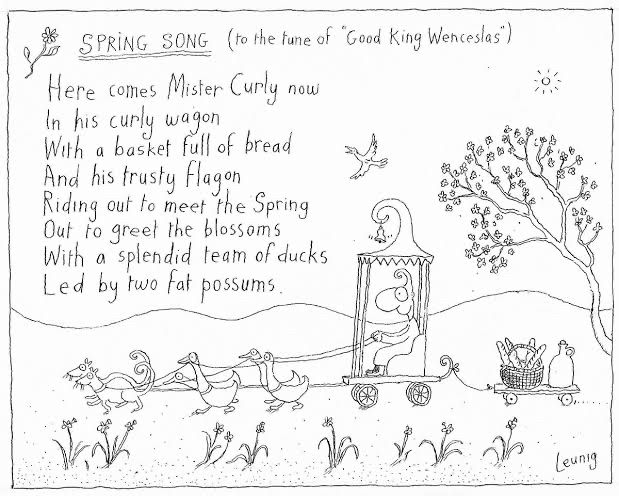 SPRING SONG (to the tune of "Good King Wenceslas")
Here comes Mister Curly now
In his curly wagon
With a basket full of bread
And his trusty flagon
Riding out to meet the Spring
Out to greet the blossoms
With a splendid team of ducks
Led by two fat possums.
Leunig